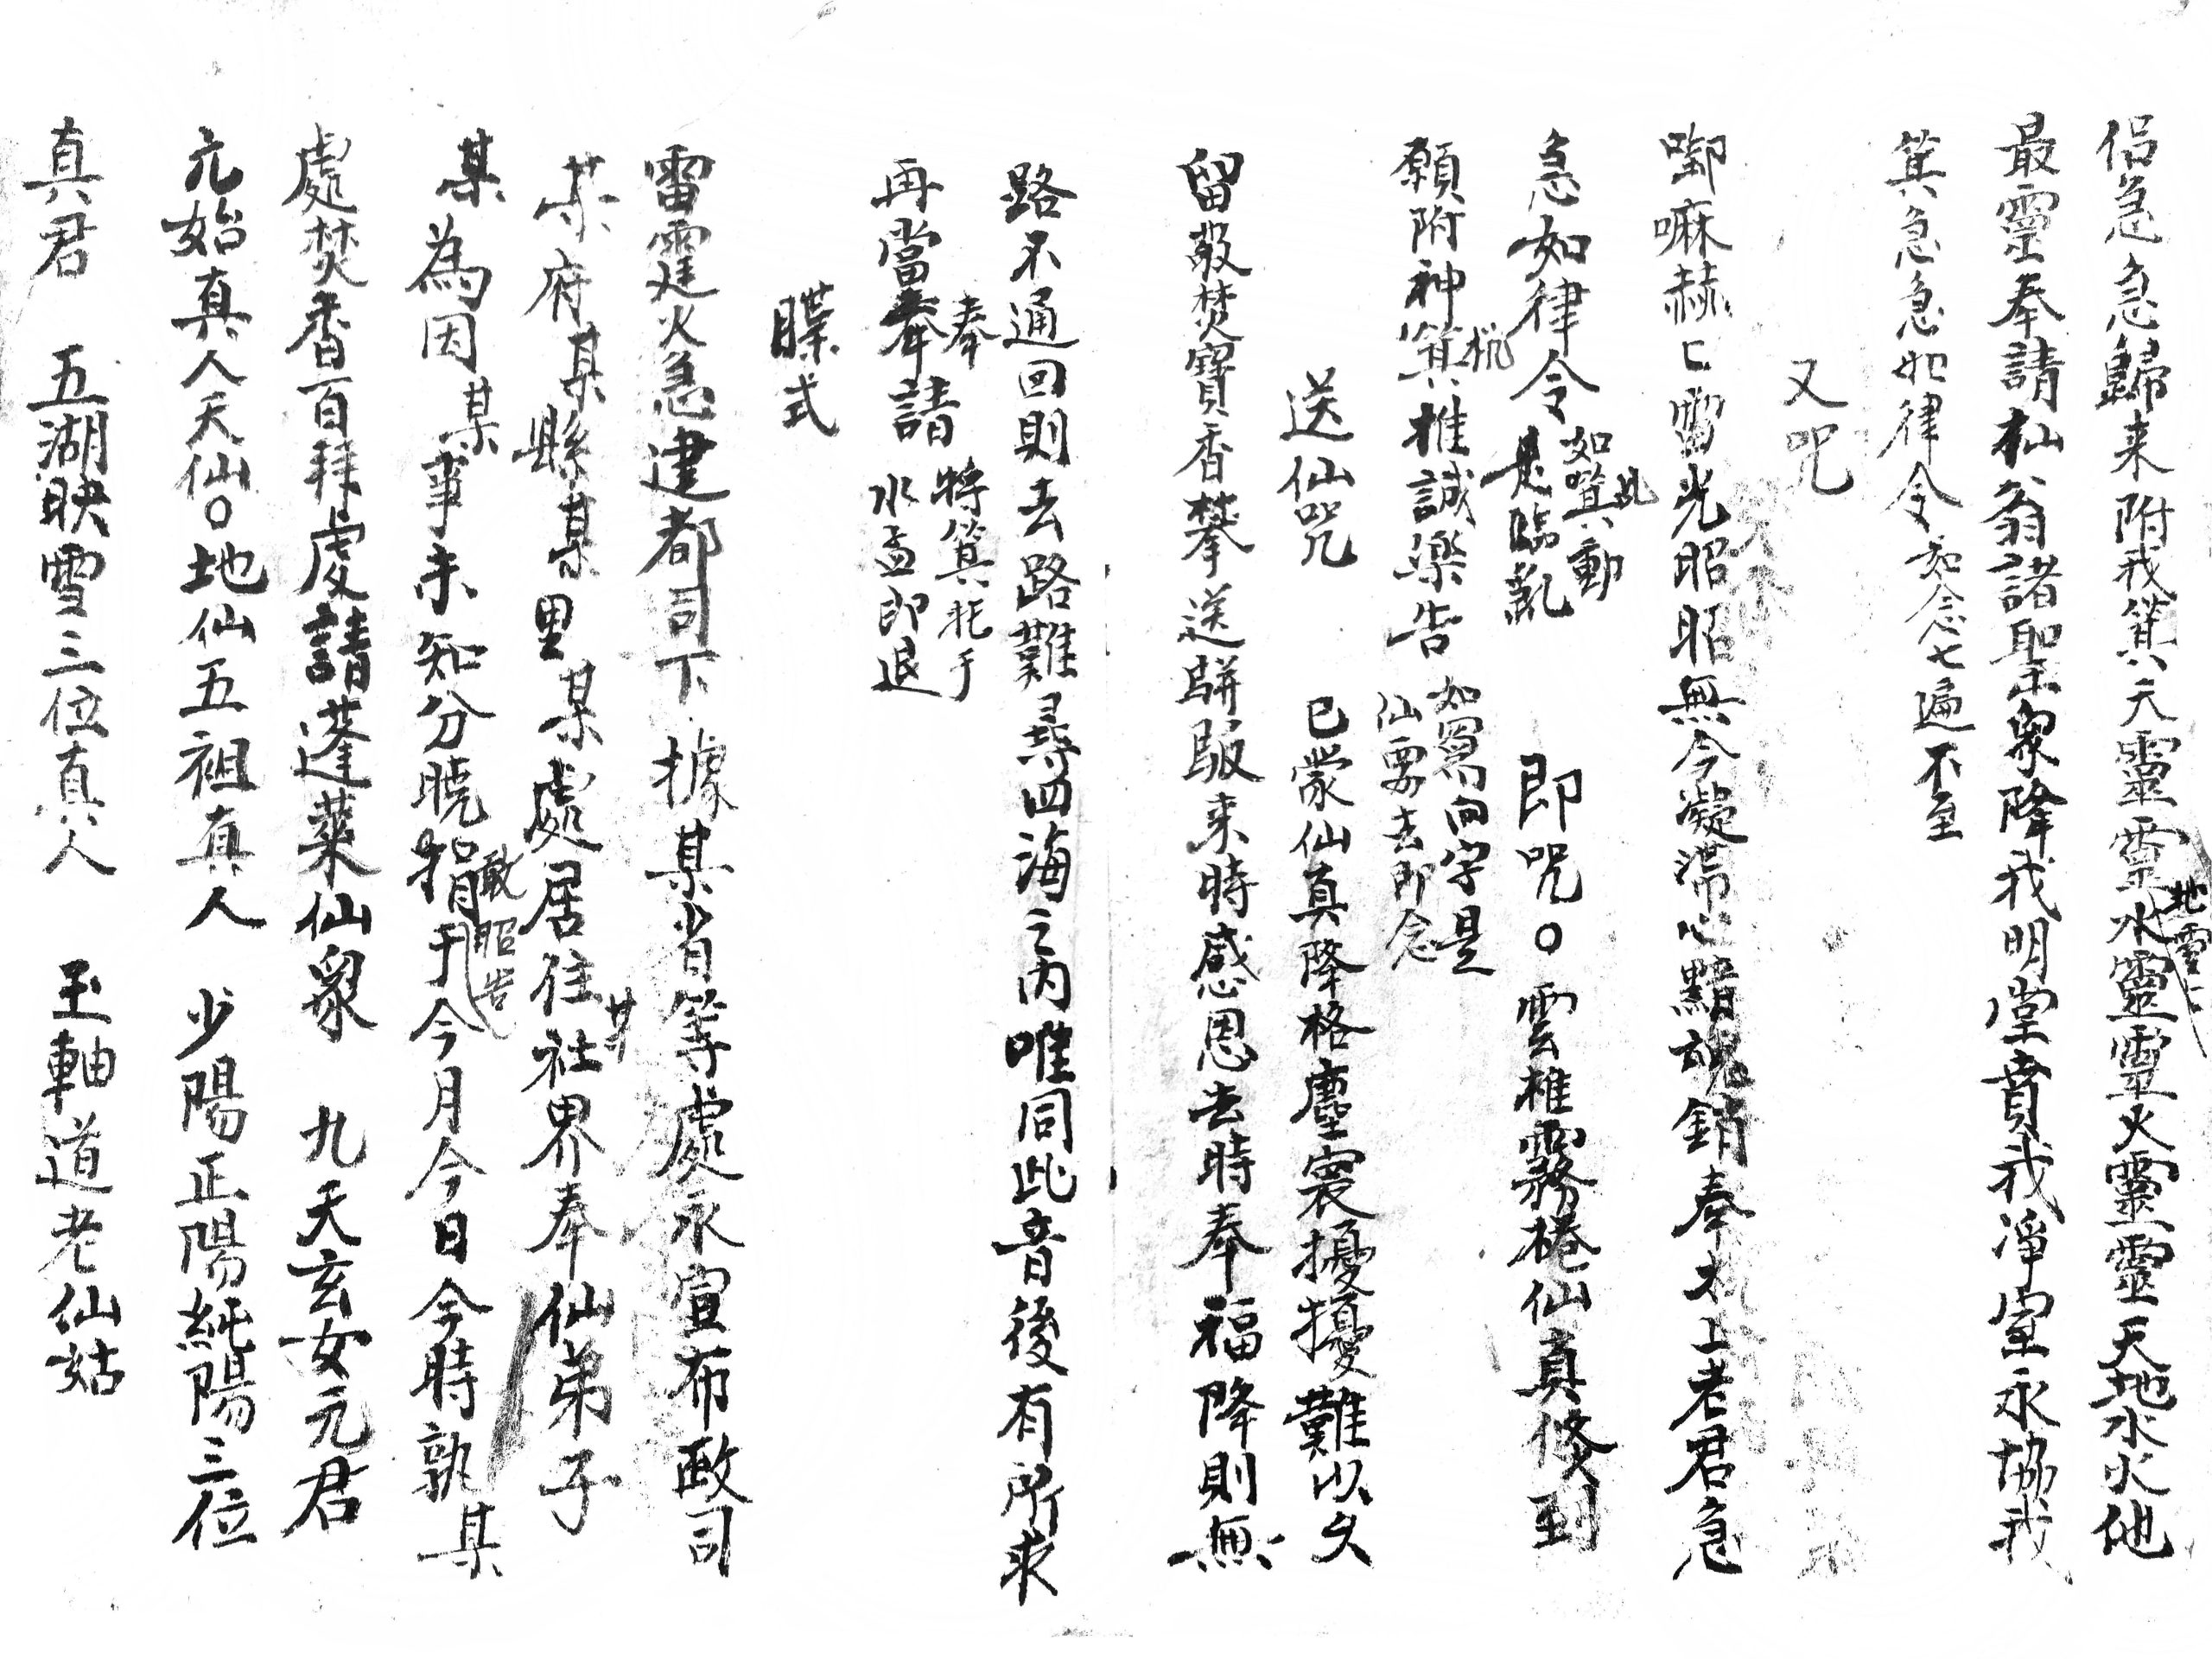 侣急急歸来附我箕天靈靈地靈〻水靈靈火靈靈天地水火他
最靈奉請杣翁諸聖衆降我明堂賁我淨室永協我
箕急急如律令如念七遍不至
又咒
唧嘛赫〻雷光昭昭無今凝滞心黯魂銷奉太上老君急
急如律令如箕動此是臨亂
即咒〇雲椎霧棬仙真倏到
願附神箕机推誠樂告如寫向字是仙要去即念
送仙咒
已蒙仙真降格塵寰擾擾難以久
留敬焚寶香攀送駢駆来時感恩去時奉福降則無
路不通回則去路難尋四海之内唯同此音後有所求
再當奉奉請將箕托于水盂即退
牒式
雷霆火急建都司下據某省等處承宣布政司
某府某縣某里某處居住某社界奉仙弟子
某為因某事未知分曉敢昭告捐于今月今日今時執某
處焚香百拜虔請蓬莱仙衆 九天玄女元君
元始真人天仙〇地仙五祖真人 少陽正陽純陽三位
真君 五湖映雪三位真人 玉軸道老仙姑